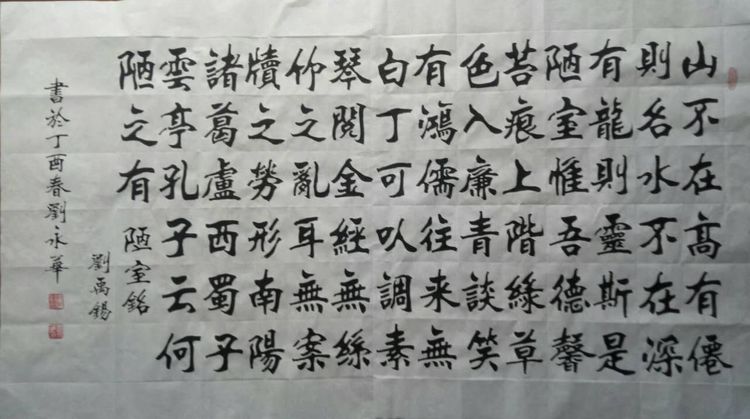 山不在高有僊
則名水不在深
有龍則靈斯是
陋室惟吾德馨
苔痕上階綠草
色入廉青談笑
有鴻儒往來無
白丁可㕥調素
琴閱金經無絲
竹之亂耳無案
牘之勞形南陽
諸葛盧西蜀子
雲亭孔子云何
陋之有 陋室銘
劉禹錫
書於丁酉春劉永華